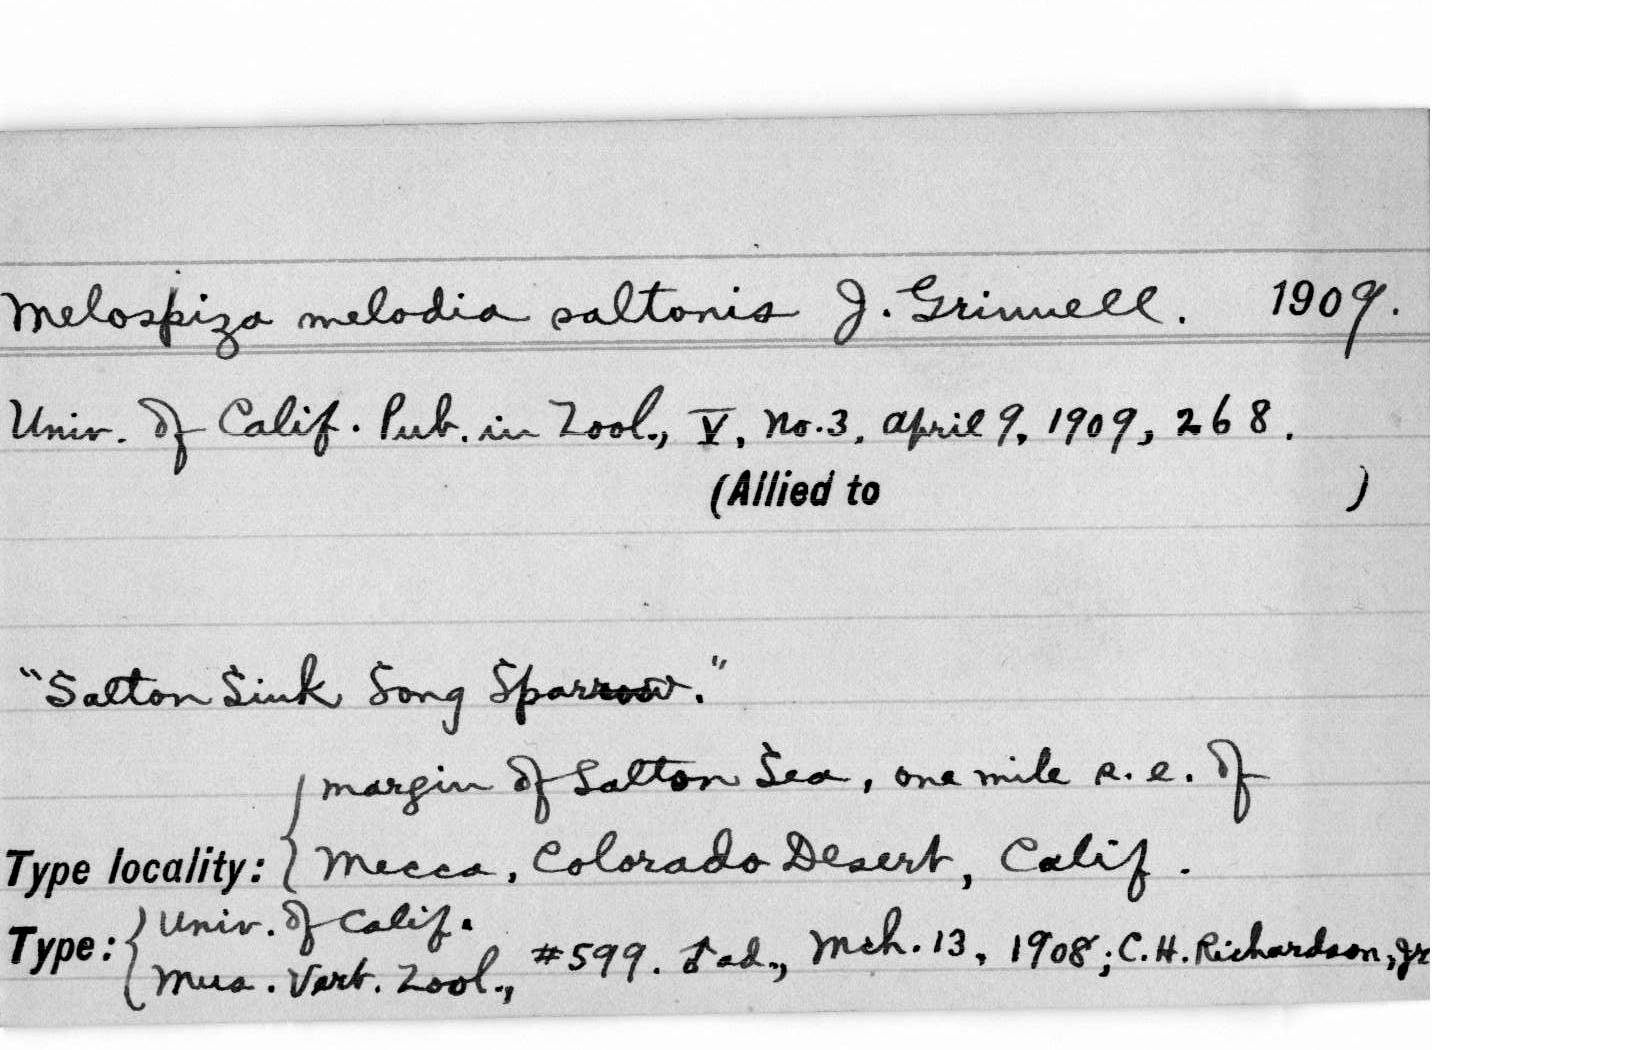 Melospiza melodia saltonis J. Grinnell. 1909.
Univ. of Calif. Pub. in Zool., V, No. 3, April 9, 1909, 268.
(Allied to )
"Salton Sink Song Sparrow."
margin of Salton Sea, one mile s.e. of
Type locality: { Mecca, Colorado Desert, Calif.
Type: { Univ. of Calif.
Mus. Vert. Zool., #599. ♂ ad., Mch. 13, 1908; C.H. Richardson, Jr